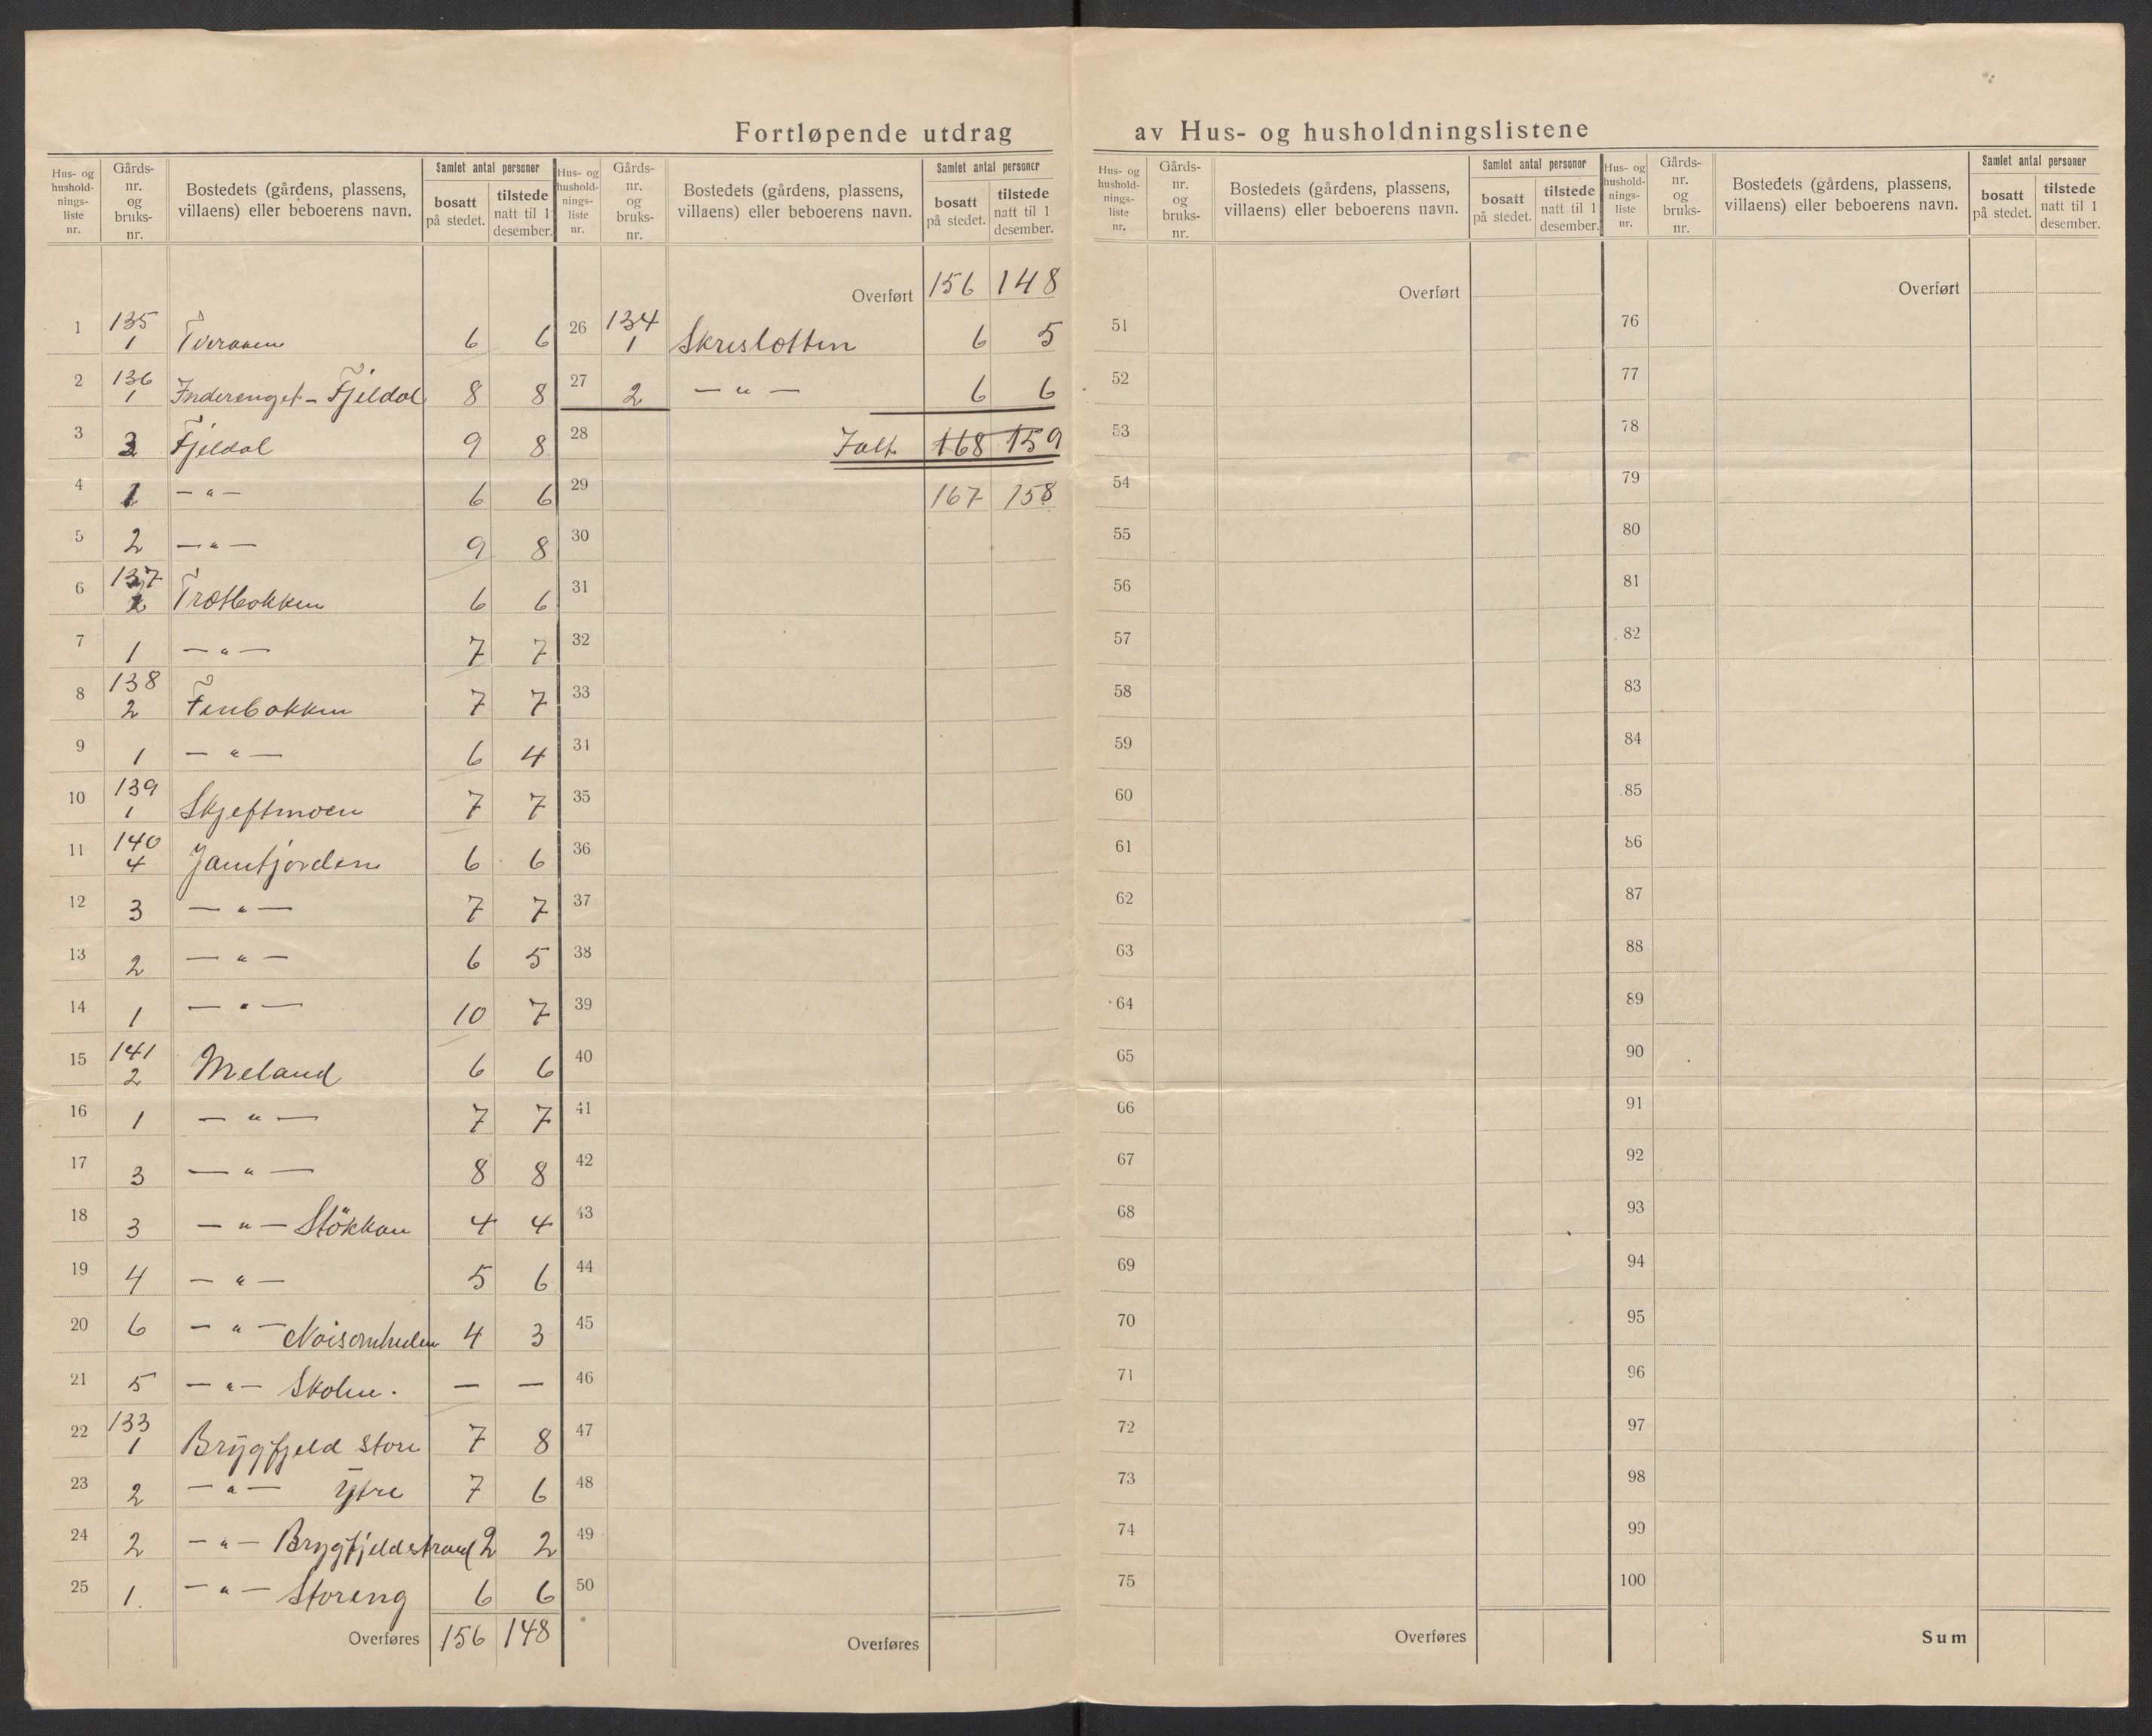 Fortløpende utdrag av Hus- og husholdningslistene
Hus- og hushold- nings- liste nr. | Gårds- nr. og bruks- nr. | Bostedets (gårdens, plassens, villaens) eller beboerens navn. | Samlet antal personer | bosatt på stedet. | tilstede natt til 1 desember.
1 | 135 1 | Tveraaen | 6 | 6
2 | 136 1 | Inderenget - Fjeldal | 8 | 8
3 | 3 | Fjeldal | 9 | 8
4 | 1 | — " — | 6 | 6
5 | 2 | — " — | 9 | 8
6 | 137 2 | Trætbakken | 6 | 6
7 | 1 | — " — | 7 | 7
8 | 138 2 | Finbakken | 7 | 7
9 | 1 | — " — | 6 | 4
10 | 139 1 | Skjeftmoen | 7 | 7
11 | 140 4 | Jamtjorden | 6 | 6
12 | 3 | — " — | 7 | 7
13 | 2 | — " — | 6 | 5
14 | 1 | — " — | 10 | 7
15 | 141 2 | Meland | 6 | 6
16 | 1 | — " — | 7 | 7
17 | 3 | — " — | 8 | 8
18 | 3 | — " — Stökkan | 4 | 4
19 | 4 | — " — | 5 | 6
20 | 6 | — " — Nöisomheden | 4 | 3
21 | 5 | — " — Skolen. | — | —
22 | 133 1 | Brygfjeld store | 7 | 8
23 | 2 | — " — Ytre | 7 | 6
24 | 2 | — " — Brygfjeldstrand | 2 | 2
25 | 1. | — " — Storeng | 6 | 6
Overføres | 156 | 148
Hus- og hushold- nings- liste nr. | Gårds- nr. og bruks- nr. | Bostedets (gårdens, plassens, villaens) eller beboerens navn. | Samlet antal personer | bosatt på stedet. | tilstede natt til 1 desember.
Overført | 156 | 148
26 | 134 1 | Skreslotten | 6 | 5
27 | 2 | — " — | 6 | 6
28 | Ialt | 168 | 159
29 | 167 | 158
30
31
32
33
34
35
36
37
38
39
40
41
42
43
44
45
46
47
48
49
50
Overføres
Hus- og hushold- nings- liste nr. | Gårds- nr. og bruks- nr. | Bostedets (gårdens, plassens, villaens) eller beboerens navn. | Samlet antal personer | bosatt på stedet. | tilstede natt til 1 desember.
Overført
51
52
53
54
55
56
57
58
59
60
61
62
63
64
65
66
67
68
69
70
71
72
73
74
75
Overføres
Hus- og hushold- nings- liste nr. | Gårds- nr. og bruks- nr. | Bostedets (gårdens, plassens, villaens) eller beboerens navn. | Samlet antal personer | bosatt på stedet. | tilstede natt til 1 desember.
Overført
76
77
78
79
80
81
82
83
84
85
86
87
88
89
90
91
92
93
94
95
96
97
98
99
100
Sum